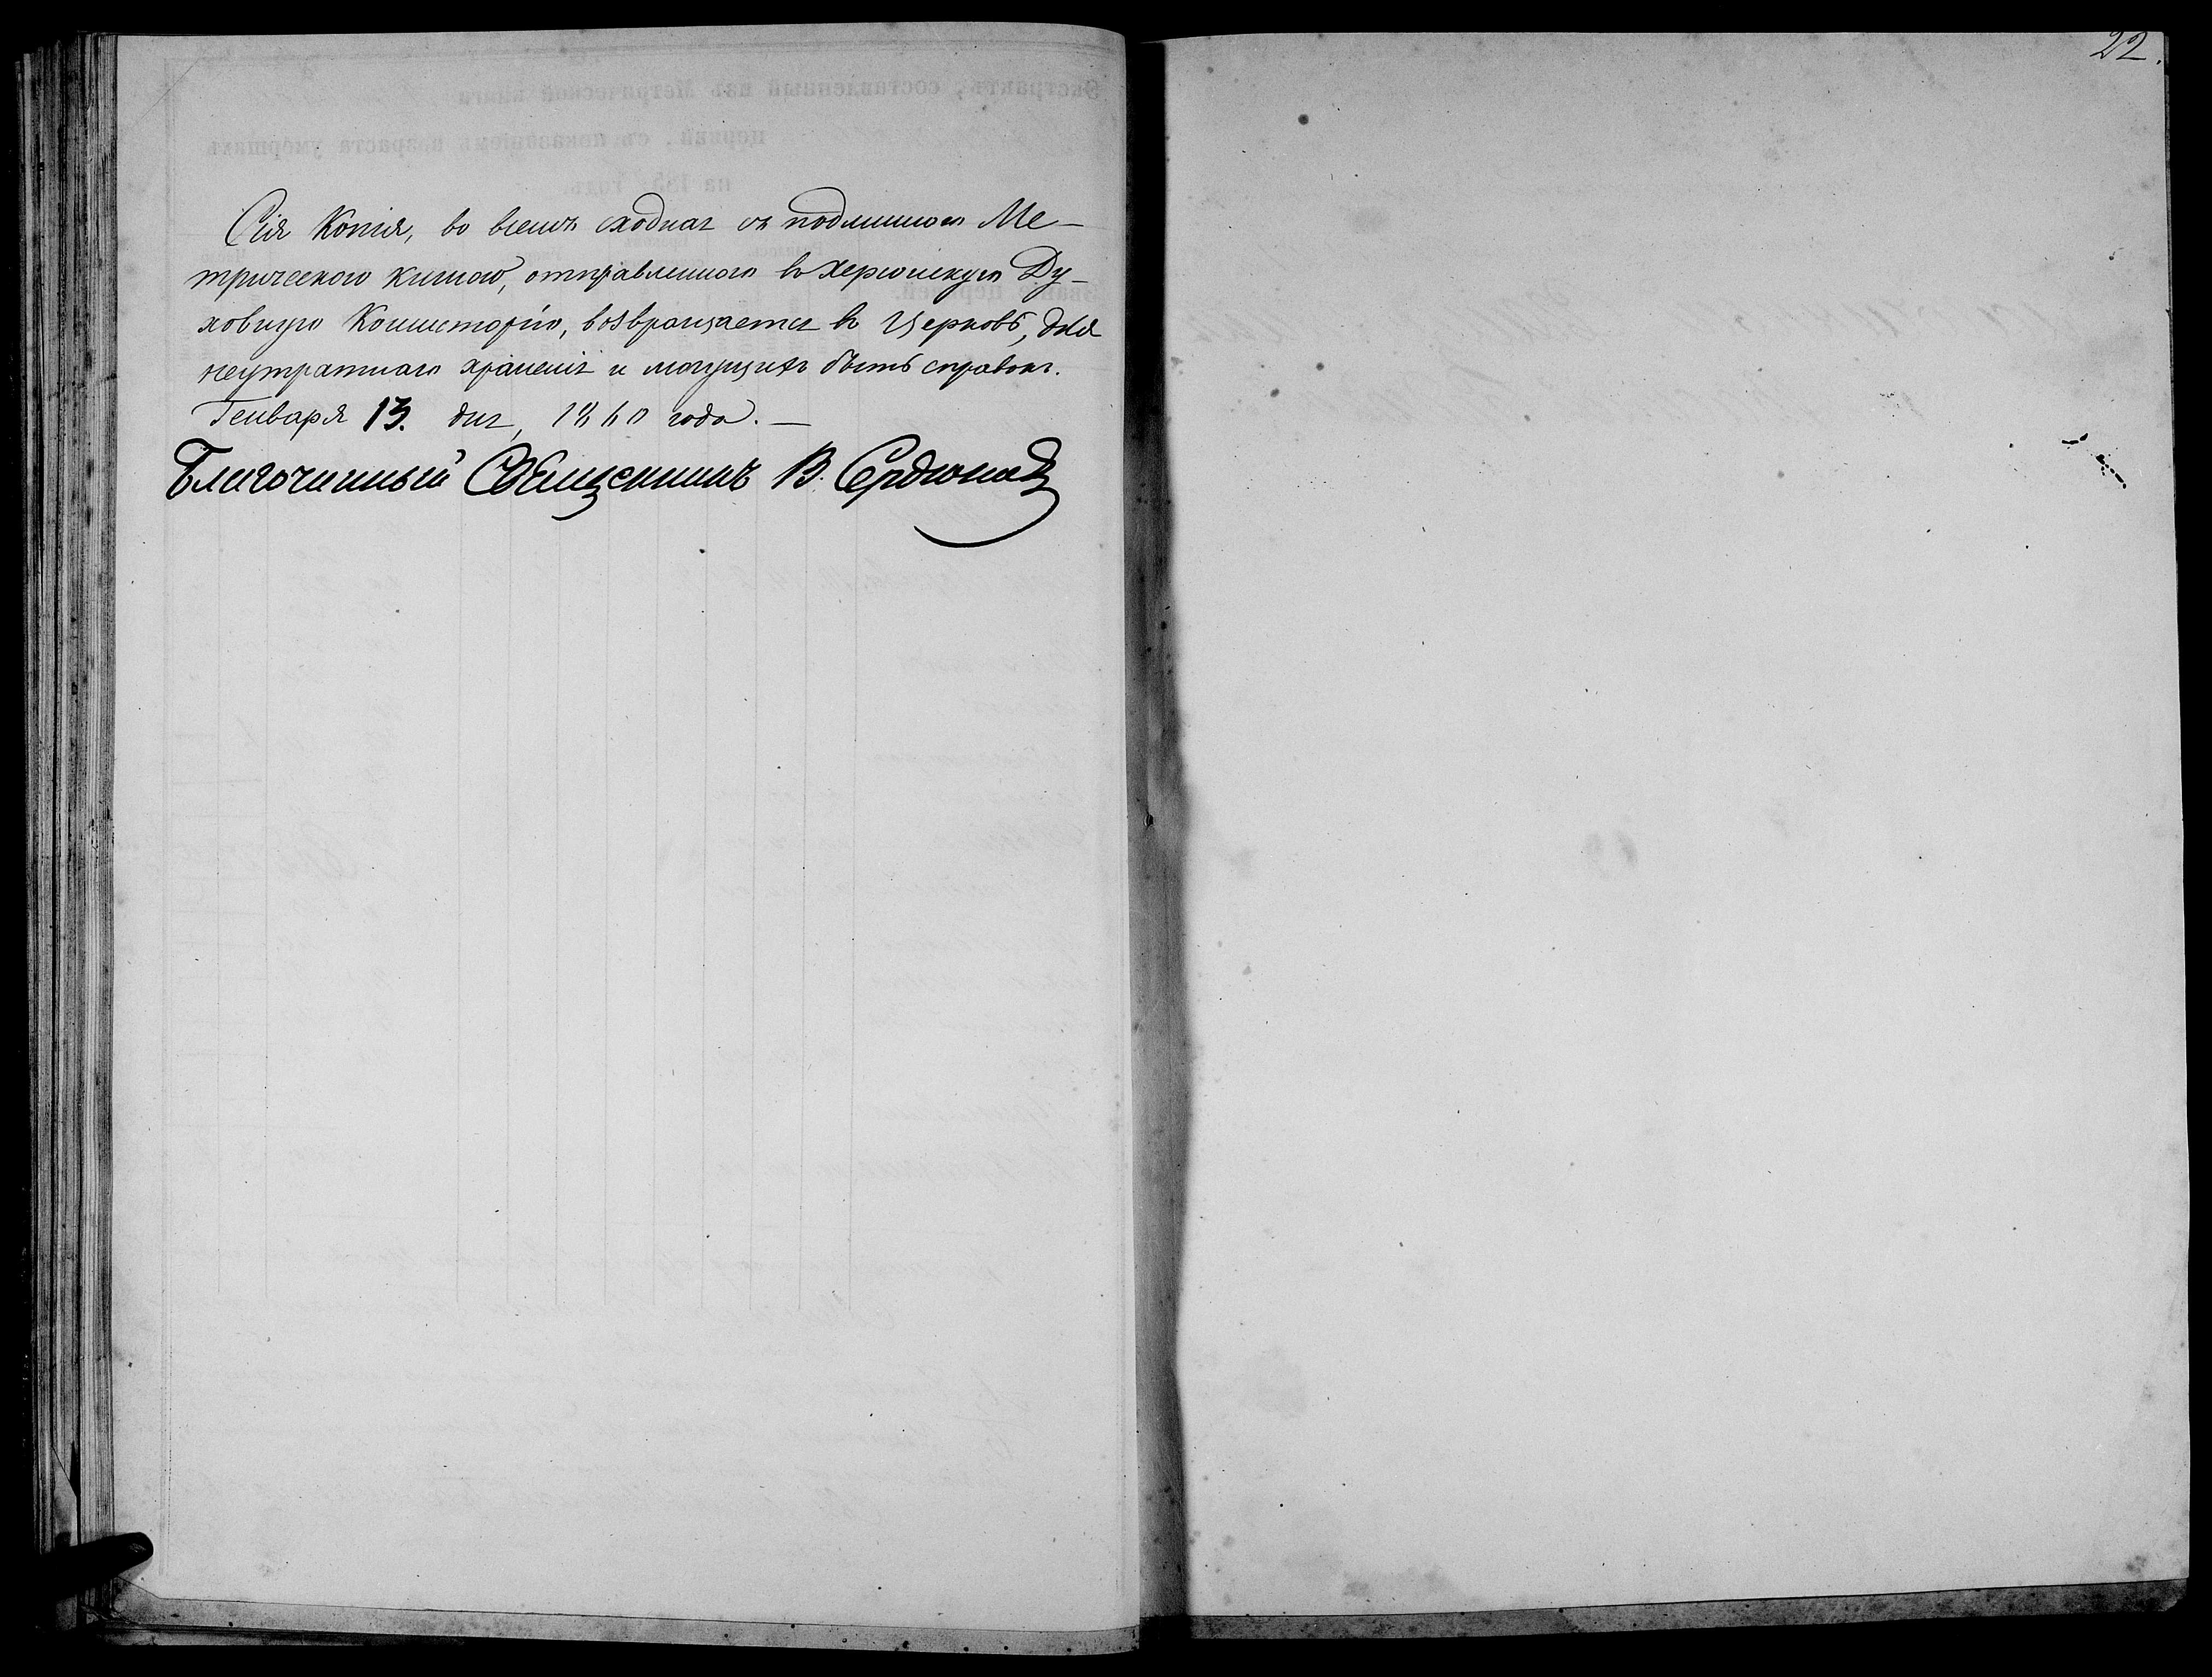 22.
Сія Копія, во всемъ сходная съ подлинною Ме-
трическою книгою, отправленною въ Херсонскую Ду-
ховную Консисторію, возвращается въ Церковь, для
неутратнаго храненія и могущихъ быть справокъ.
Генваря 13. дня, 1860 года. —
Благочинный Священникъ В. Сердюковъ